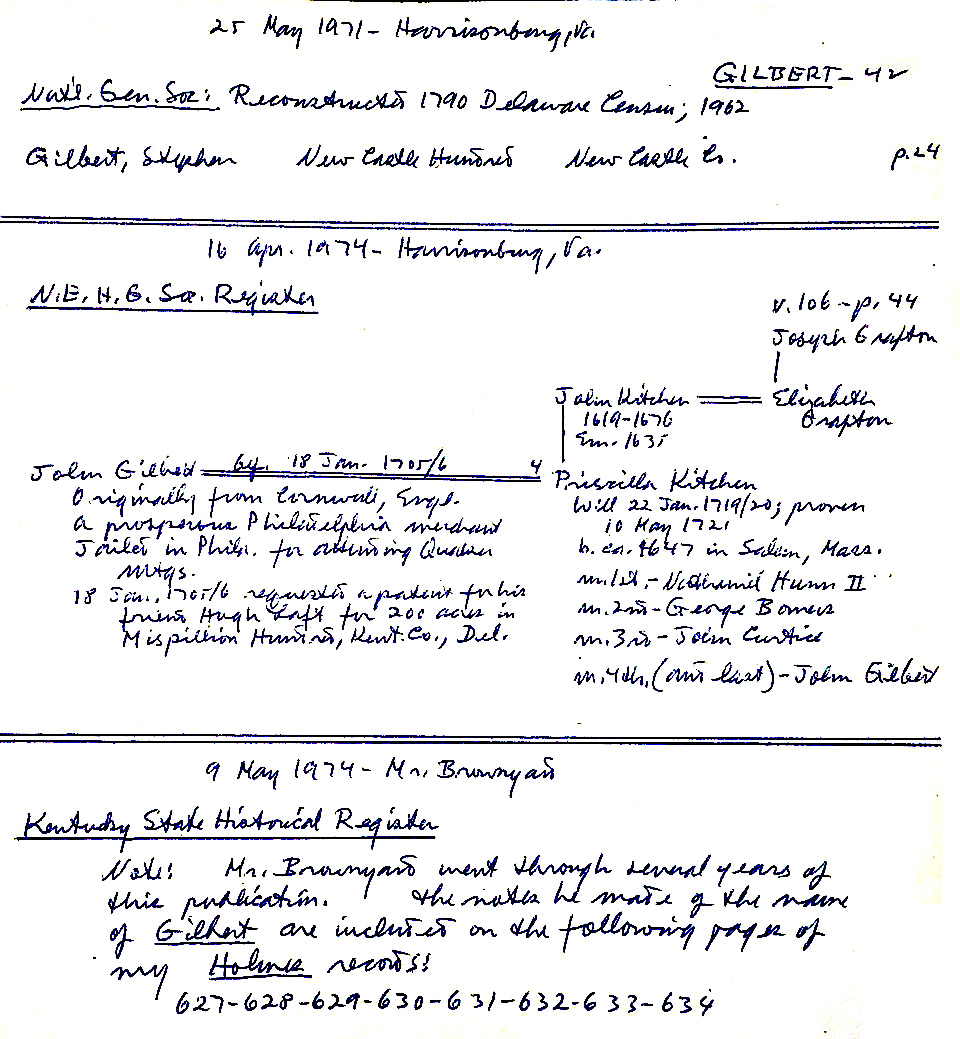 25 May 1971 - Harrisonburg, Va.
GILBERT - 42
Nat'l. Gen. Soc: Reconstructed 1790 Delaware Census; 1962
Gilbert, Stephen New Castle Hundred New Castle Co. p.24
16 Apr. 1974 - Harrisonburg, Va.
N.E. H. G. Soc. Register
v. 106 - p. 44
Joseph Grafton
John Kitchen Elizabeth
1619-1676 Grafton
Em. 1635
John Gilbert bef. 18 Jan. 1705/6 4 Priscilla Kitchen
Originally from Cornwall, Engl. Will 22 Jan. 1719/20; proven
a prosperous Philadelphia merchant 10 May 1721
Jailed in Phila. for attending Quaker b. ca. 1647 in Salem, Mass.
mtgs. m. 1st. - Nathaniel Hunn II
18 Jan., 1705/6 requested a patent for his
friend Hugh for 200 acres in m. 2nd - George Bowers
Mispillion Hundred, Kent. Co., Del. m. 3rd - John Curtice
m. 4th. (and last) - John Gilbert
9 May 1974 - Mr. Brownyard
Kentucky State Historical Register
Note: Mr. Brownyard went through several years of
this publication. The notes he made of the name
of Gilbert are included on the following pages of
my Holmes records:
627-628-629-630-631-632-633-634